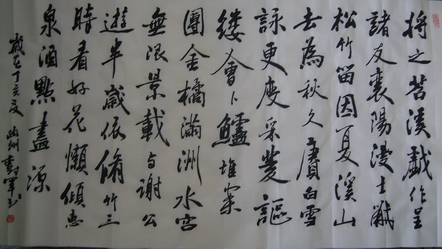 將之苕溪戲作呈
諸友襄陽漫士黻
松竹留因夏溪山
去為秋久賡白雪
詠更度采菱謳
縷會卜鱸堆案
團金橘滿洲水宮
無限景載与謝公
遊半歲依脩竹三
時看好花懶傾惠
泉酒點盡源
歲在丁亥夏